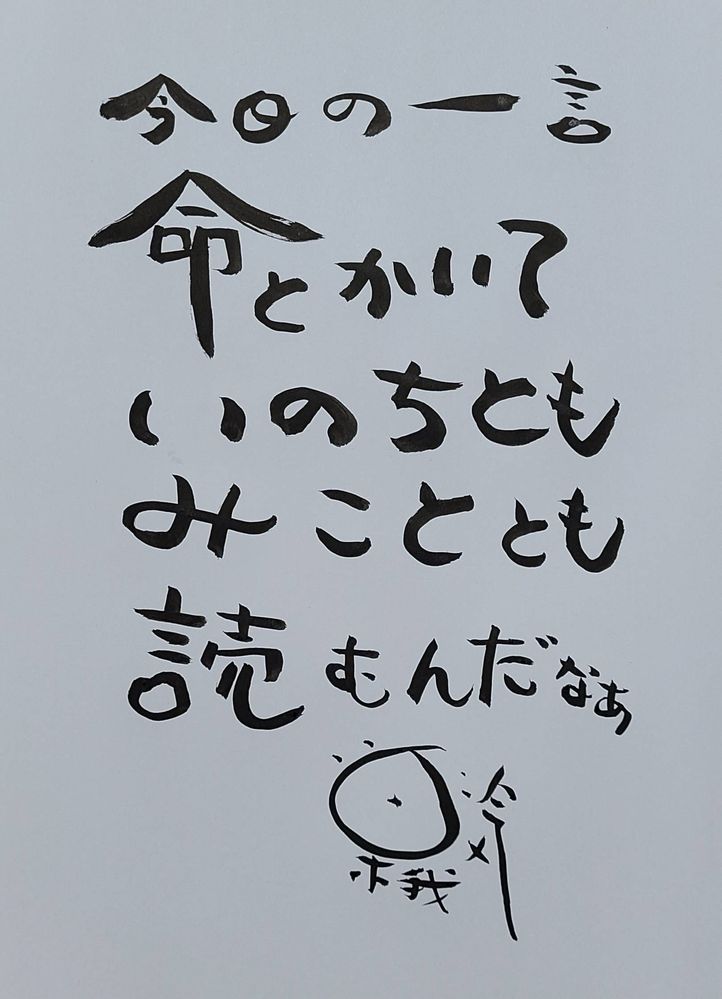 今日の一言
命とかいて
いのちとも
みこととも
読むんだなぁ